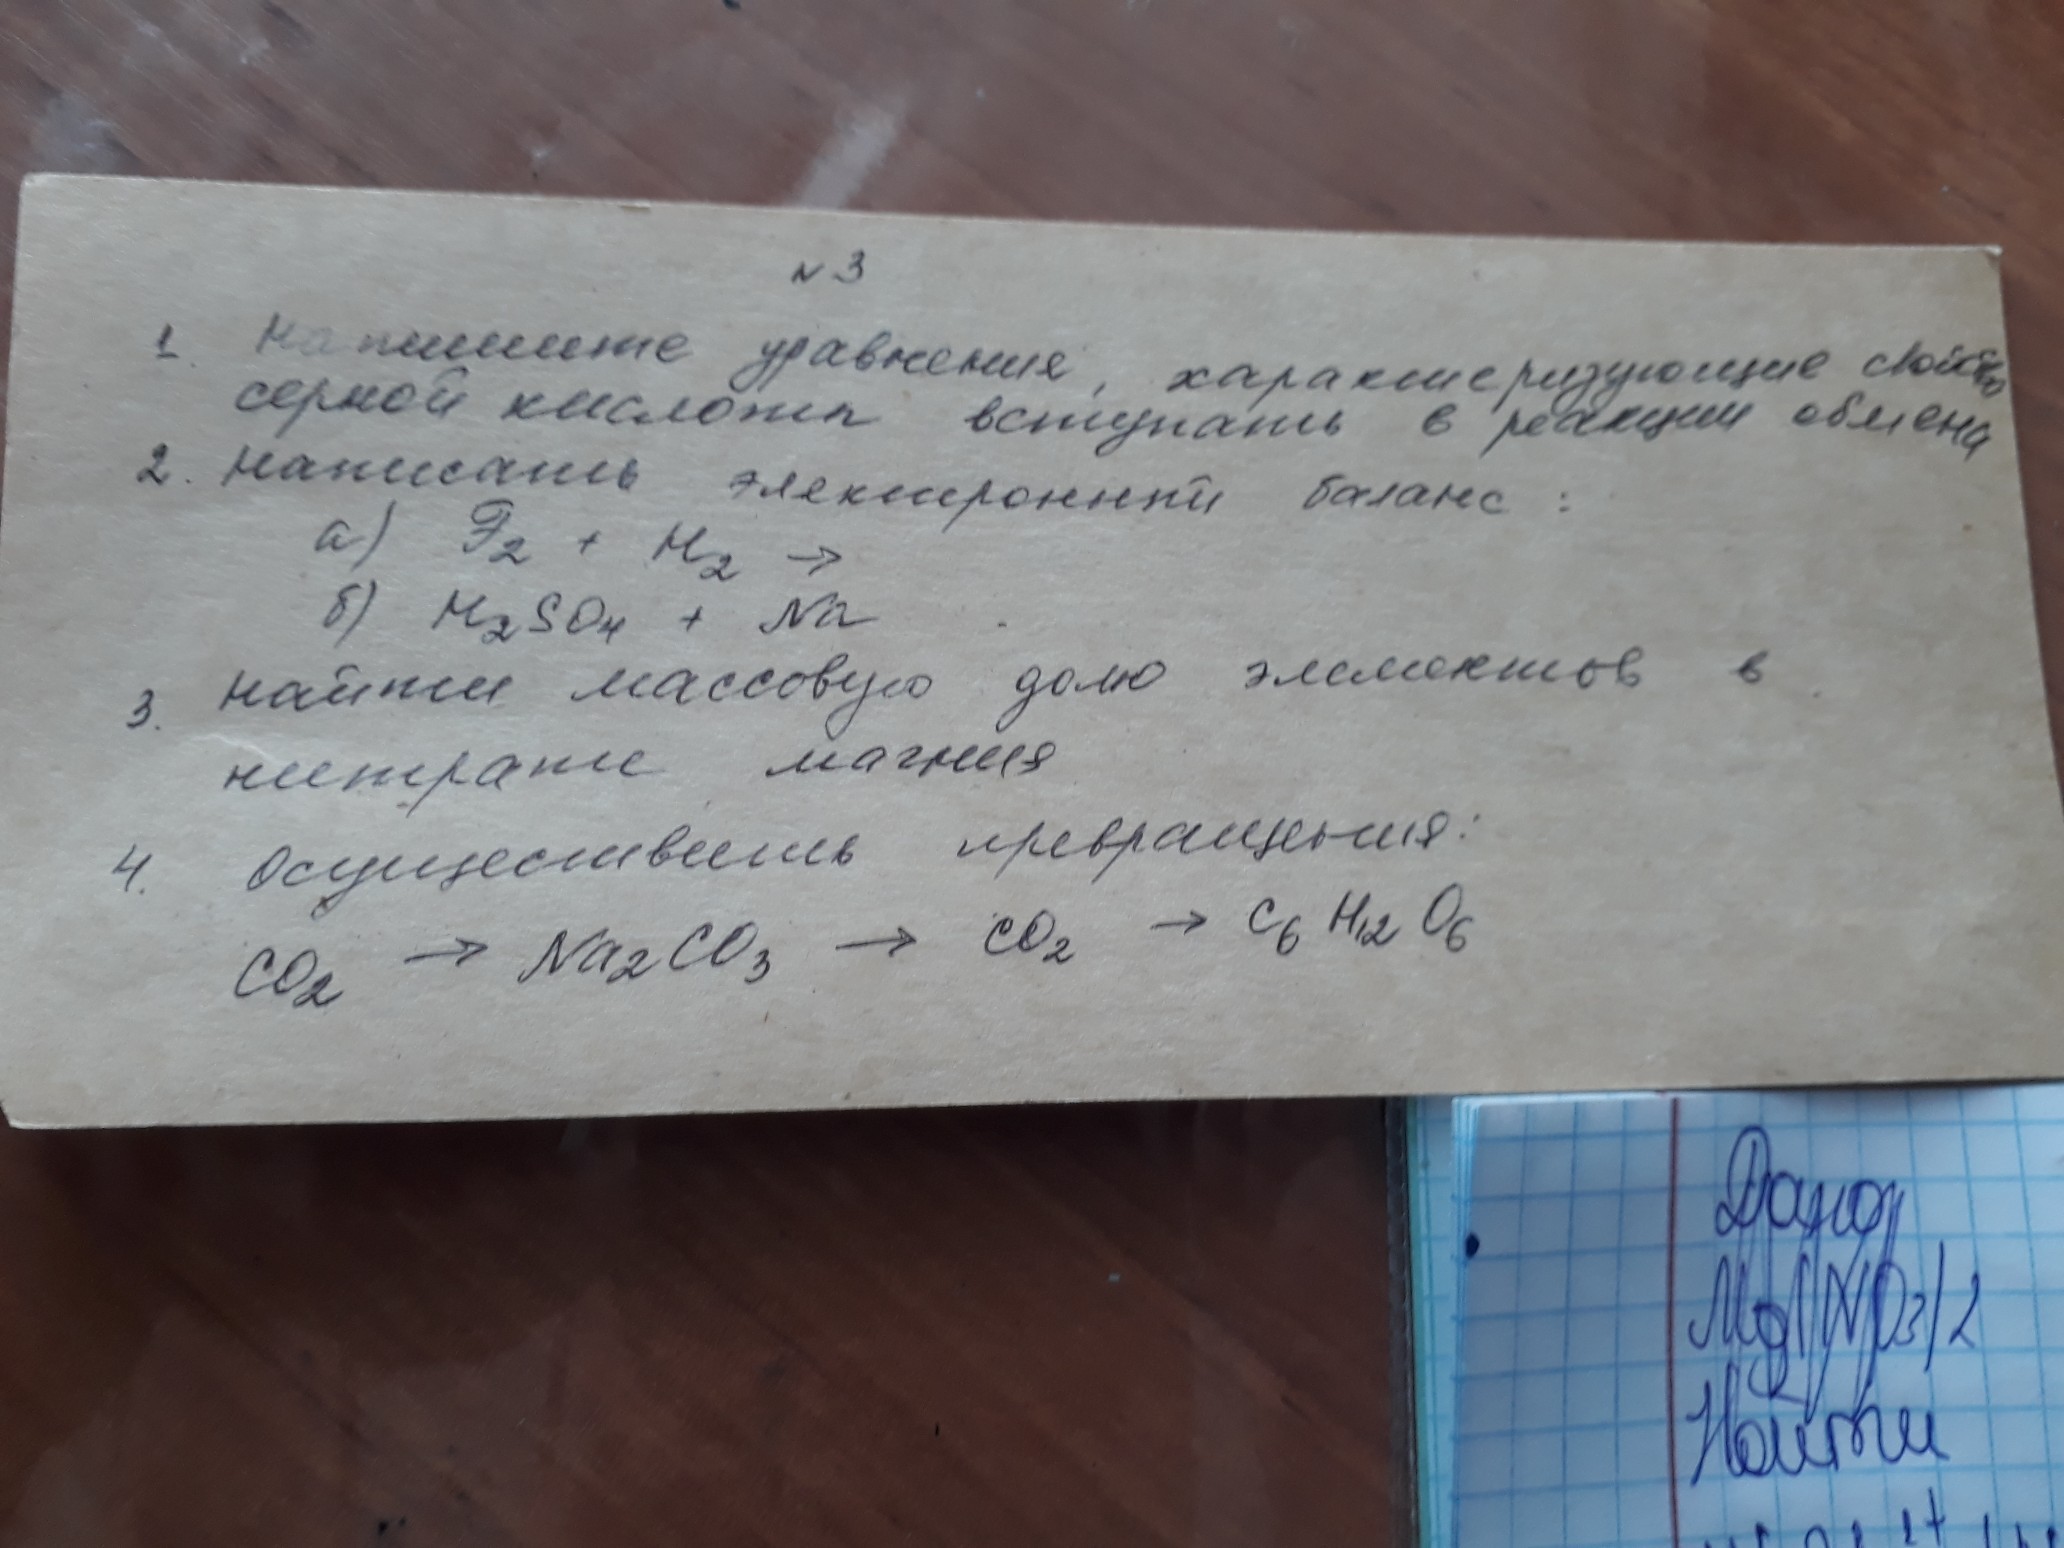 №3
1. Напишите уравнения, характеризующие свойство
серной кислоты вступать в реакции обмена
2. Написать электронный баланс:
а) F₂ + H₂ →
б) H₂SO₄ + Na
3. Найти массовую долю элементов в
нитрате магния
4. Осуществить превращения:
CO₂ → Na₂CO₃ → CO₂ → C₆H₁₂O₆
Дано
Mg(NO₃)2
Найти